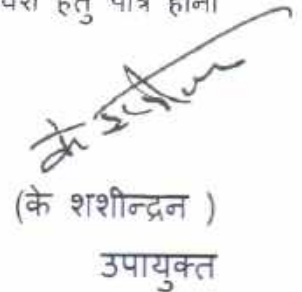 हेतु पात्र होगा
(के शशीन्द्रन )
उपायुक्त